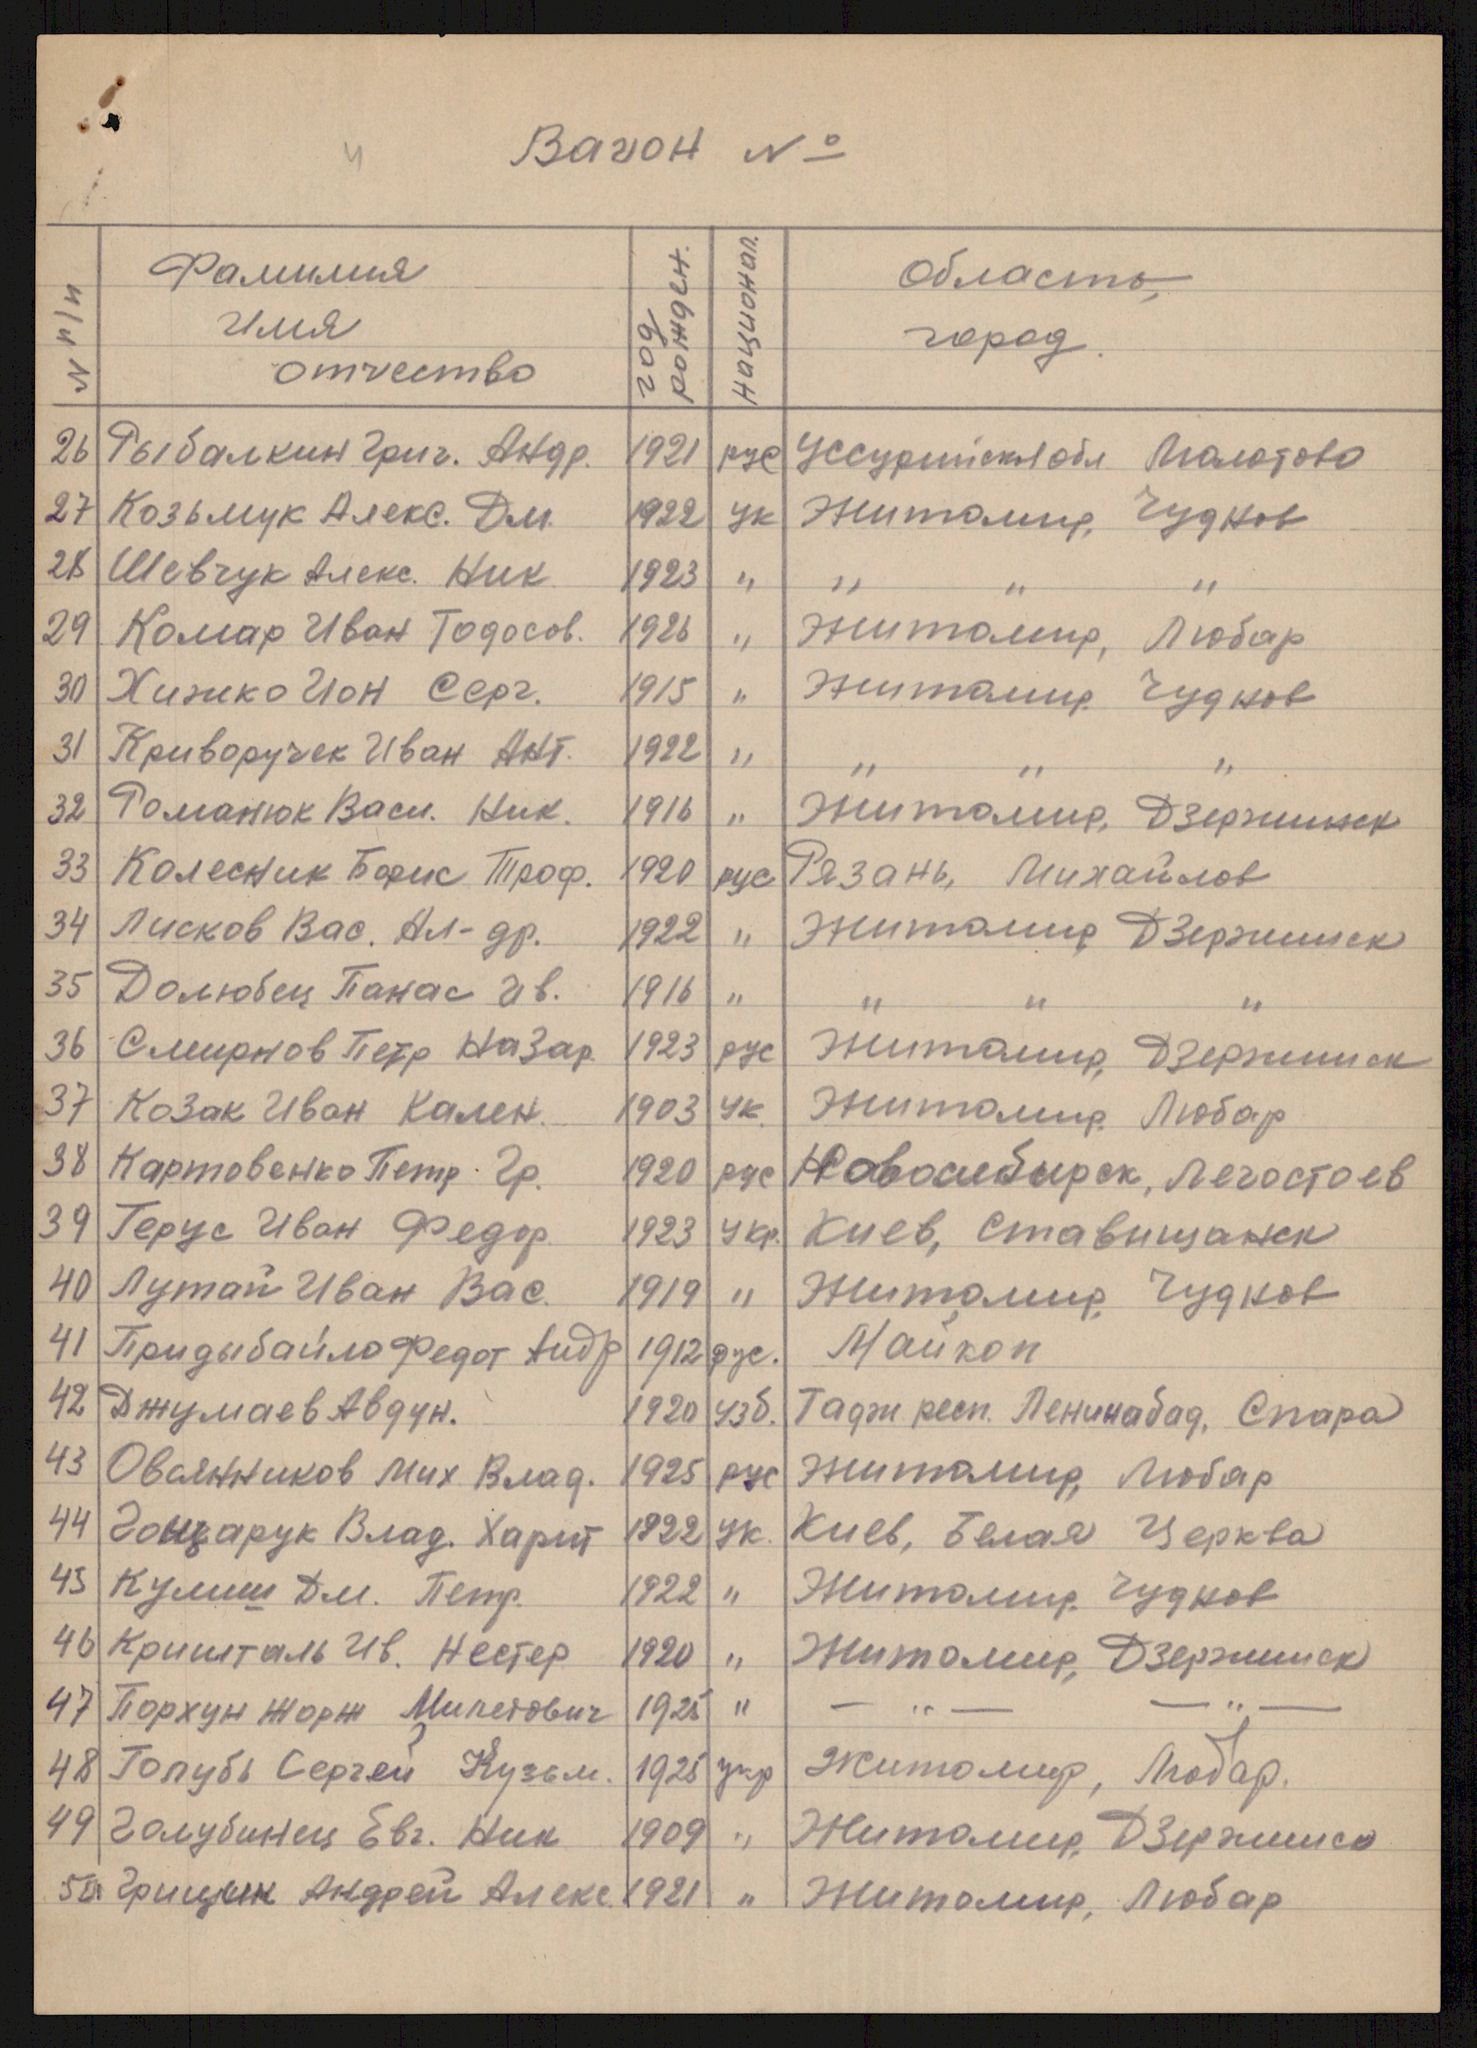 Вагон №
N п/п
Фамилия
имя
отчество
год
рожден.
национал.
Область,
город.
26 Рыбалкин Григ. Андр. 1921 рус Уссурийск обл Молотово
27 Козьмук Алекс. Дм. 1922 ук Житомир, Чуднов
28 Шевчук Алекс. Ник 1923 " " " "
29 Комар Иван Тодосов. 1926 " Житомир, Любар
30 Хижко Ион Серг. 1915 " Житомир. Чуднов
31 Криворучек Иван Ант. 1922 " " " "
32 Романюк Васи. Ник. 1916 " Житомир, Дзержинск
33 Колесник Борис Троф. 1920 рус Рязань, Михайлов
34 Лисков Вас. Ал-др. 1922 " Житомир Дзержинск
35 Долюбец Панас Ив. 1916 " " " "
36 Смирнов Петр Назар. 1923 рус Житомир, Дзержинск
37 Козак Иван Кален. 1903 ук. Житомир. Любар
38 Картовенко Петр Гр. 1920 рус Новосибирск, Легостоев
39 Герус Иван Федор. 1923 укр. Киев, Ставищанск
40 Лутай Иван Вас. 1919 " Житомир, Чуднов
41 Придыбайло Федот Андр 1912 рус. Майкоп
42 Джумаев Авдун. 1920 узб. Тадж респ. Ленинабад, Спара
43 Овсянников Мих Влад. 1925 рус Житомир, Любар
44 Гончарук Влад. Харит 1922 ук. Киев, Белая Церква
45 Кулиш Дм. Петр. 1922 " Житомир. Чуднов
46 Кришталь Ив. Нестер 1920 " Житомир, Дзержинск
47 Порхун Жорж Милетович 1925 " — " — — " —
48 Голубь Сергей Кузьм. 1925 укр Житомир, Любар.
49 Голубинец Евг. Ник 1909 " Житомир, Дзержинск
50 Грицын Андрей Алекс. 1921 " Житомир, Любар